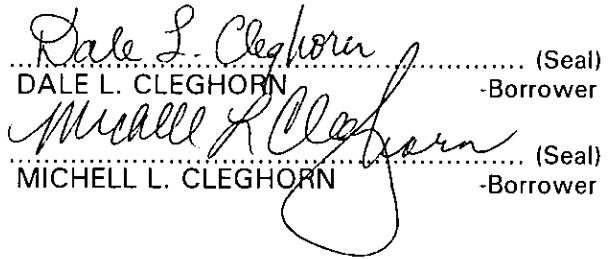 Dale L. Cleghorn
........................................ (Seal)
DALE L. CLEGHORN -Borrower
Michelle L Cleghorn
........................................ (Seal)
MICHELL L. CLEGHORN -Borrower